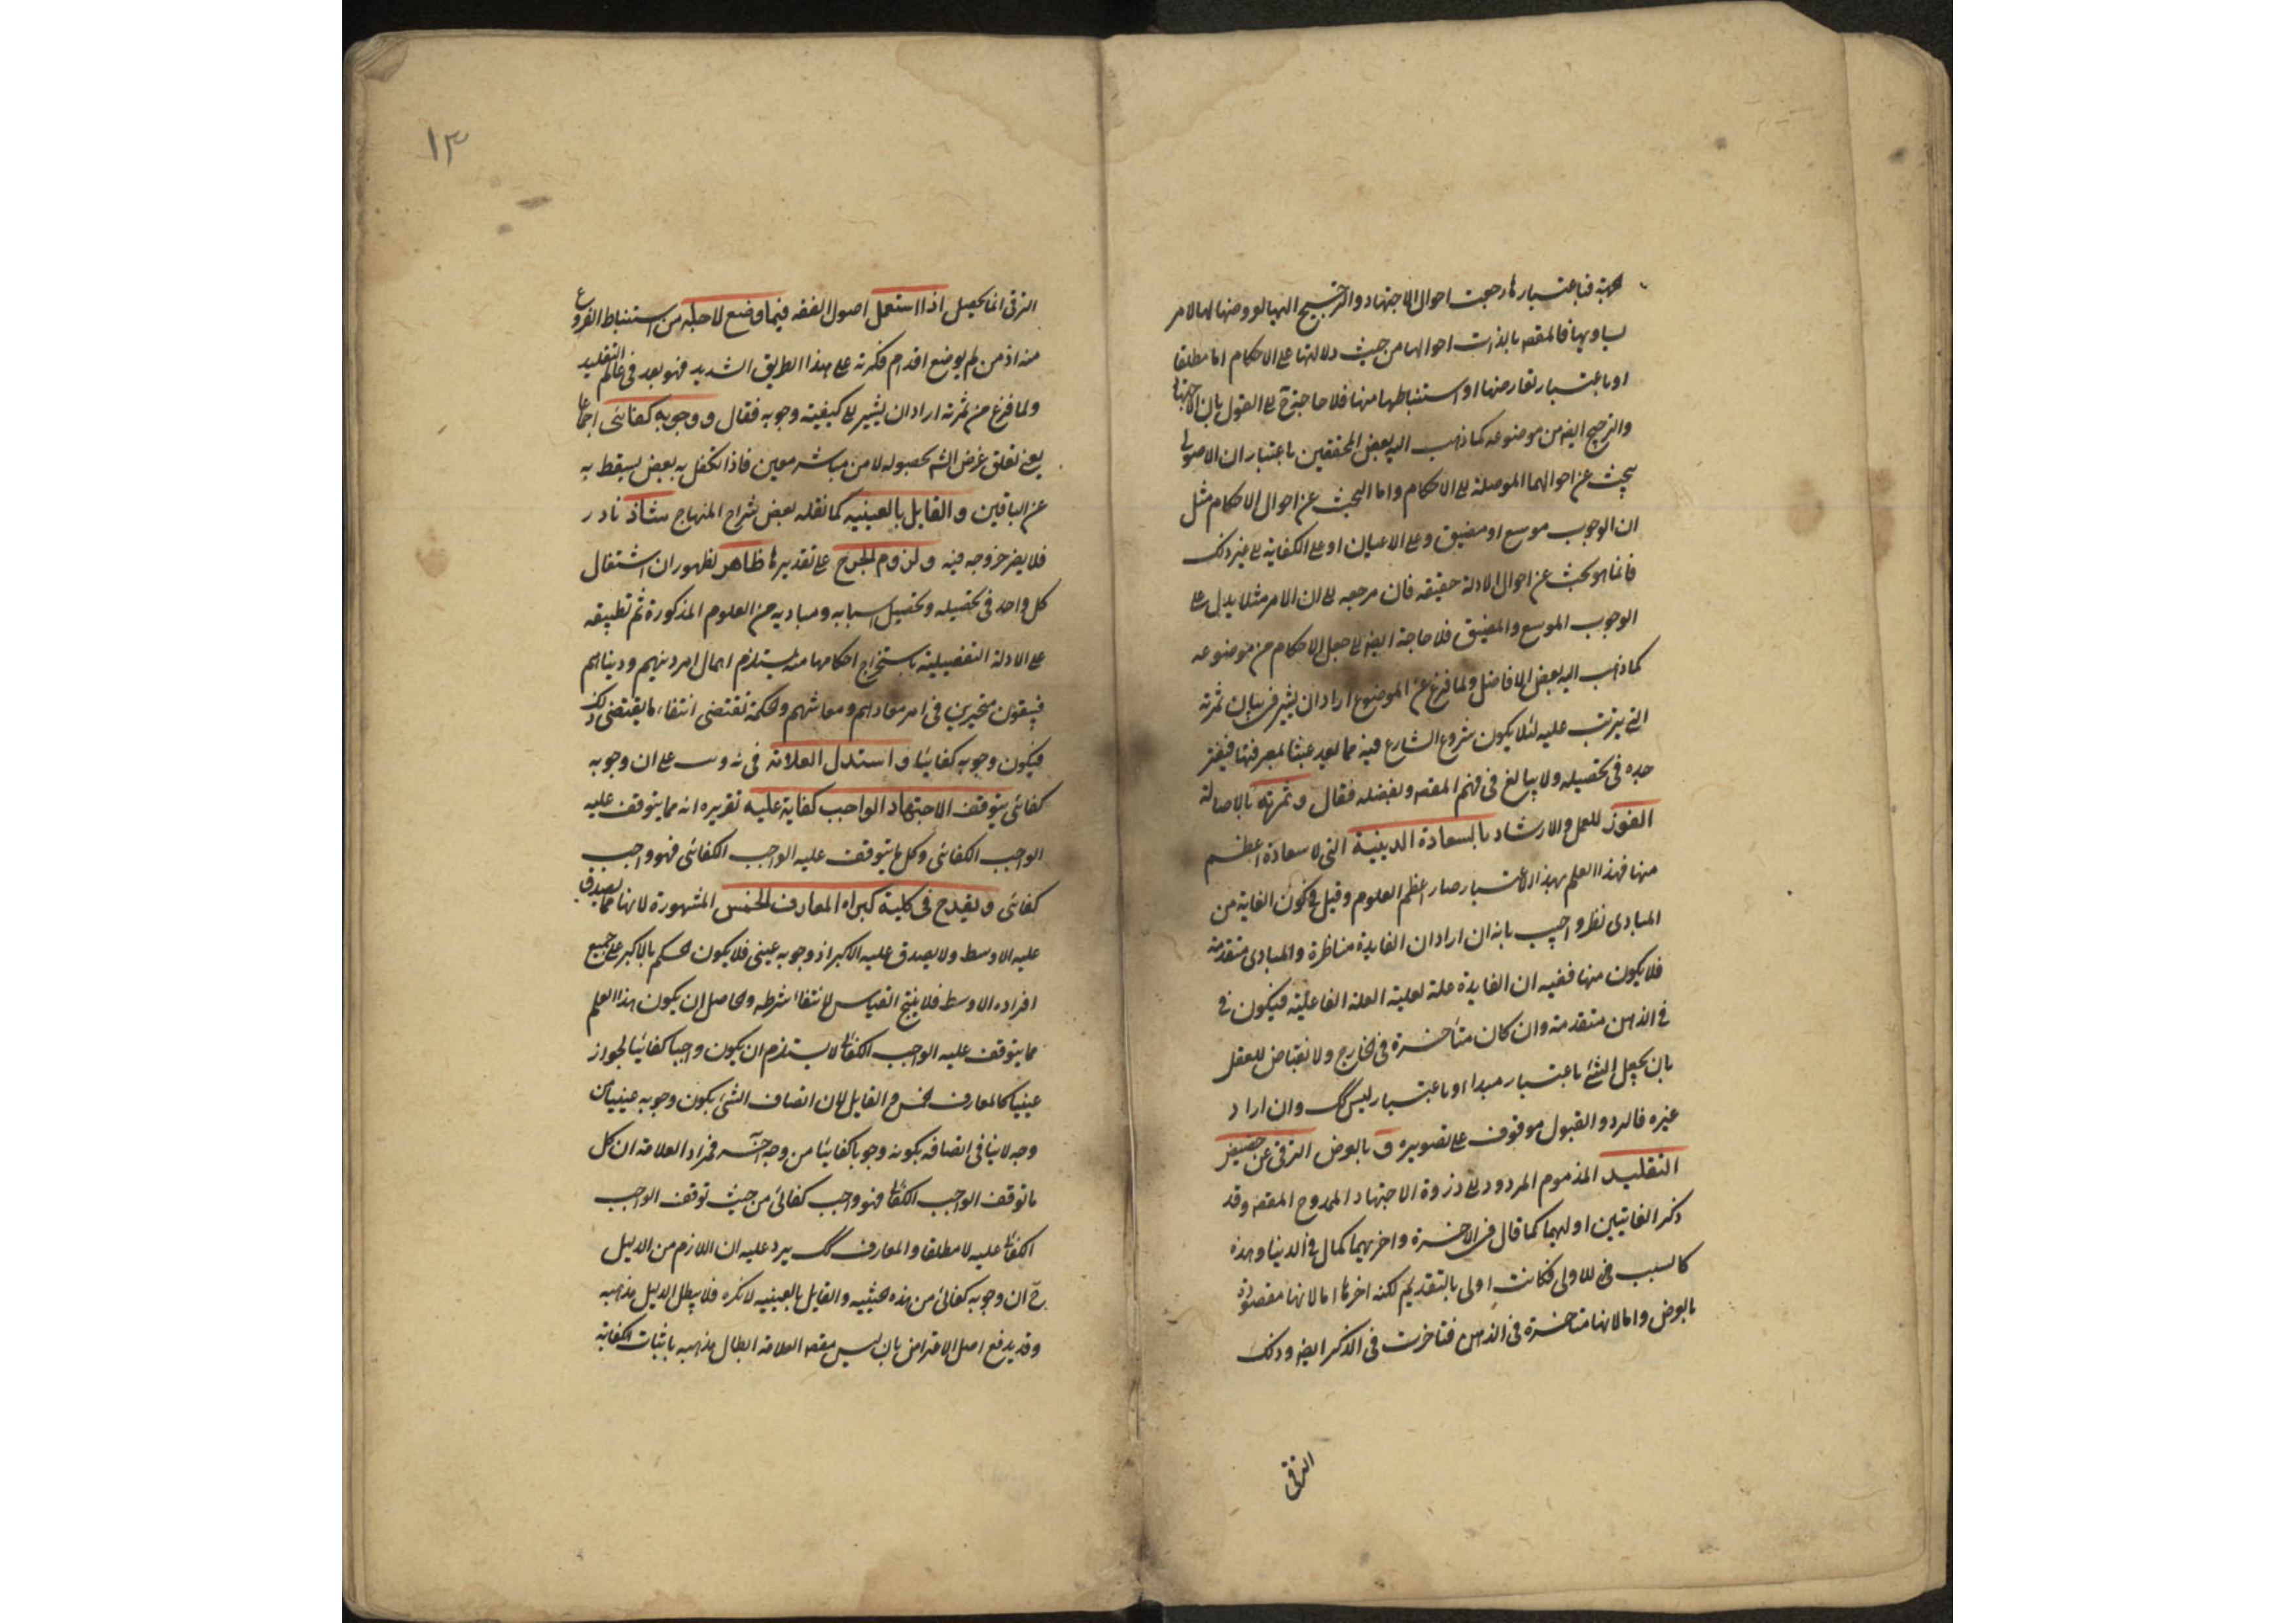 فباعتبارها رجعت احوال الاجتهاد والترجيح اليها لعروضها لها لامر
يساويها فالمقصد بالذات احوالها من حيث دلالتها على الاحكام اما مطلقا
او باعتبار تعارضها او استنباطها منها فلا حاجة ح الى القول بان الاجتهاد
والترجيح ايضا من موضوعه كما ذهب اليه بعض المحققين باعتبار ان الاصولى
يبحث عن احوالهما الموصلة الى الاحكام واما البحث عن احوال الاحكام مثل
ان الوجوب موسع او مضيق وعلى الاعيان او على الكفاية الى غير ذلك
فانما هو بحث عن احوال الادلة حقيقة فان مرجعه الى ان الامر مثلا يدل على
الوجوب الموسع والمضيق فلا حاجة ايضا الى جعل الاحكام من موضوعه
كما ذهب اليه بعض الافاضل ولما فرغ عن الموضوع اراد ان يشير فى بيان ثمرته
التى يترتب عليه لئلا يكون شروع الشارع فيه مما يعد عبثا بمعرفتها فيفتر
جده فى تحصيله ولا يبالغ فى فهم المقصد وتفصيله فقال وثمرته بالاصالة
الفوز للعمل والارشاد بالسعادة الدينية التى لا سعادة اعظم
منها فهذا العلم بهذا الاعتبار صار اعظم العلوم وقيل فى كون الغاية من
المبادى نظر واجيب بانه ان اراد ان الفايدة مناظرة والمبادى متقدمة
فلا يكون منها ففيه ان الفايدة علة لعلية العلة الفاعلية فيكون فى
فى الذهن متقدمة وان كان متأخرة فى الخارج ولا انقباض للعقل
بان يجعل الشئ باعتبار مبدا او باعتبار ليس كك وان اراد
غيره فالرد والقبول موقوف على تصويره و بالعرض الترقى عن حضيض
التقليد المذموم المردود الى ذروة الاجتهاد الممدوح المقصد وقد
ذكر الغايتين اوليهما كمال فى الاخرة واخريهما كمال فى الدنيا وهذه
كالسبب فى للاولى فكانت اولى بالتقديم لكنه اخرها اما لانها مقصودة
بالعرض واما لانها متاخرة فى الذهن فتاخرت فى الذكر ايضا وذلك
الترقى
١٣
الترقى انما يحصل اذا استعمل اصول الفقه فيما وضع لاجله من استنباط الفروع
منه اذ من لم يوضع اقدام فكرته على هذا الطريق الشديد فهو بعد فى عالم التقليد
ولما فرغ من ثمرته اراد ان يشير الى كيفية وجوبه فقال و وجوبه كفائى اجماعا
يعنى تعلق غرض الشم بحصوله لا من مباشر معين فاذا تكفل به بعض يسقط به
عن الباقين والقايل بالعينيه كما نقله بعض شراح المنهاج شاذ نادر
فلا يضر خروجه فيه ولزوم الحرج على تقديرها ظاهر لظهور ان اشتغال
كل واحد فى تحصيله وتحصيل اسبابه ومباديه من العلوم المذكورة ثم تطبيقه
على الادلة التفصيلية باستخراج احكامها منه يستلزم اهمال امر دينهم ودنياهم
فيبقون متحيرين فى امر معادهم ومعاشهم والحكمة تقتضى انتفاء ما يقتضى ذلك
فيكون وجوبه كفائيا واستدل العلامة فى على ان وجوبه
كفائى بتوقف الاجتهاد الواجب كفاية عليه تقريره انه مما يتوقف عليه
الواجب الكفائى وكل ما يتوقف عليه الواجب الكفائى فهو واجب
كفائى ويقدح فى كلية كبراه المعارف الخمس المشهورة لانها مما يصدق
عليه الاوسط ولا يصدق عليه الاكبر اذ وجوبه عينى فلا يكون الحكم بالاكبر على جميع
افراده الاوسط فلا ينتج القياس لانتفاء شرطه والحاصل ان يكون هذا العلم
مما يتوقف عليه الواجب الكفائى لا يستلزم ان يكون واجبا كفائيا لجواز
عينيا كالمعارف الخمس والقايل لان اتصاف الشئ بكون وجوبه عينيا من
وجه لا ينافى اتصافه بكونه وجوبا كفائيا من وجه اخر فمراد العلامة ان كل
ما توقف الواجب الكفائى فهو واجب كفائى من حيث توقف الواجب
الكفائى عليه لا مطلقا والمعارف كك يرد عليه ان اللازم من الدليل
ح ان وجوبه كفائى من هذه الحيثية والقايل بالعينيه لا ينكره فلا يبطل الدليل مذهبه
وقد يدفع اصل الاعتراض بان ليس مقصد العلامة ابطال مذهبه باثبات الكفاية